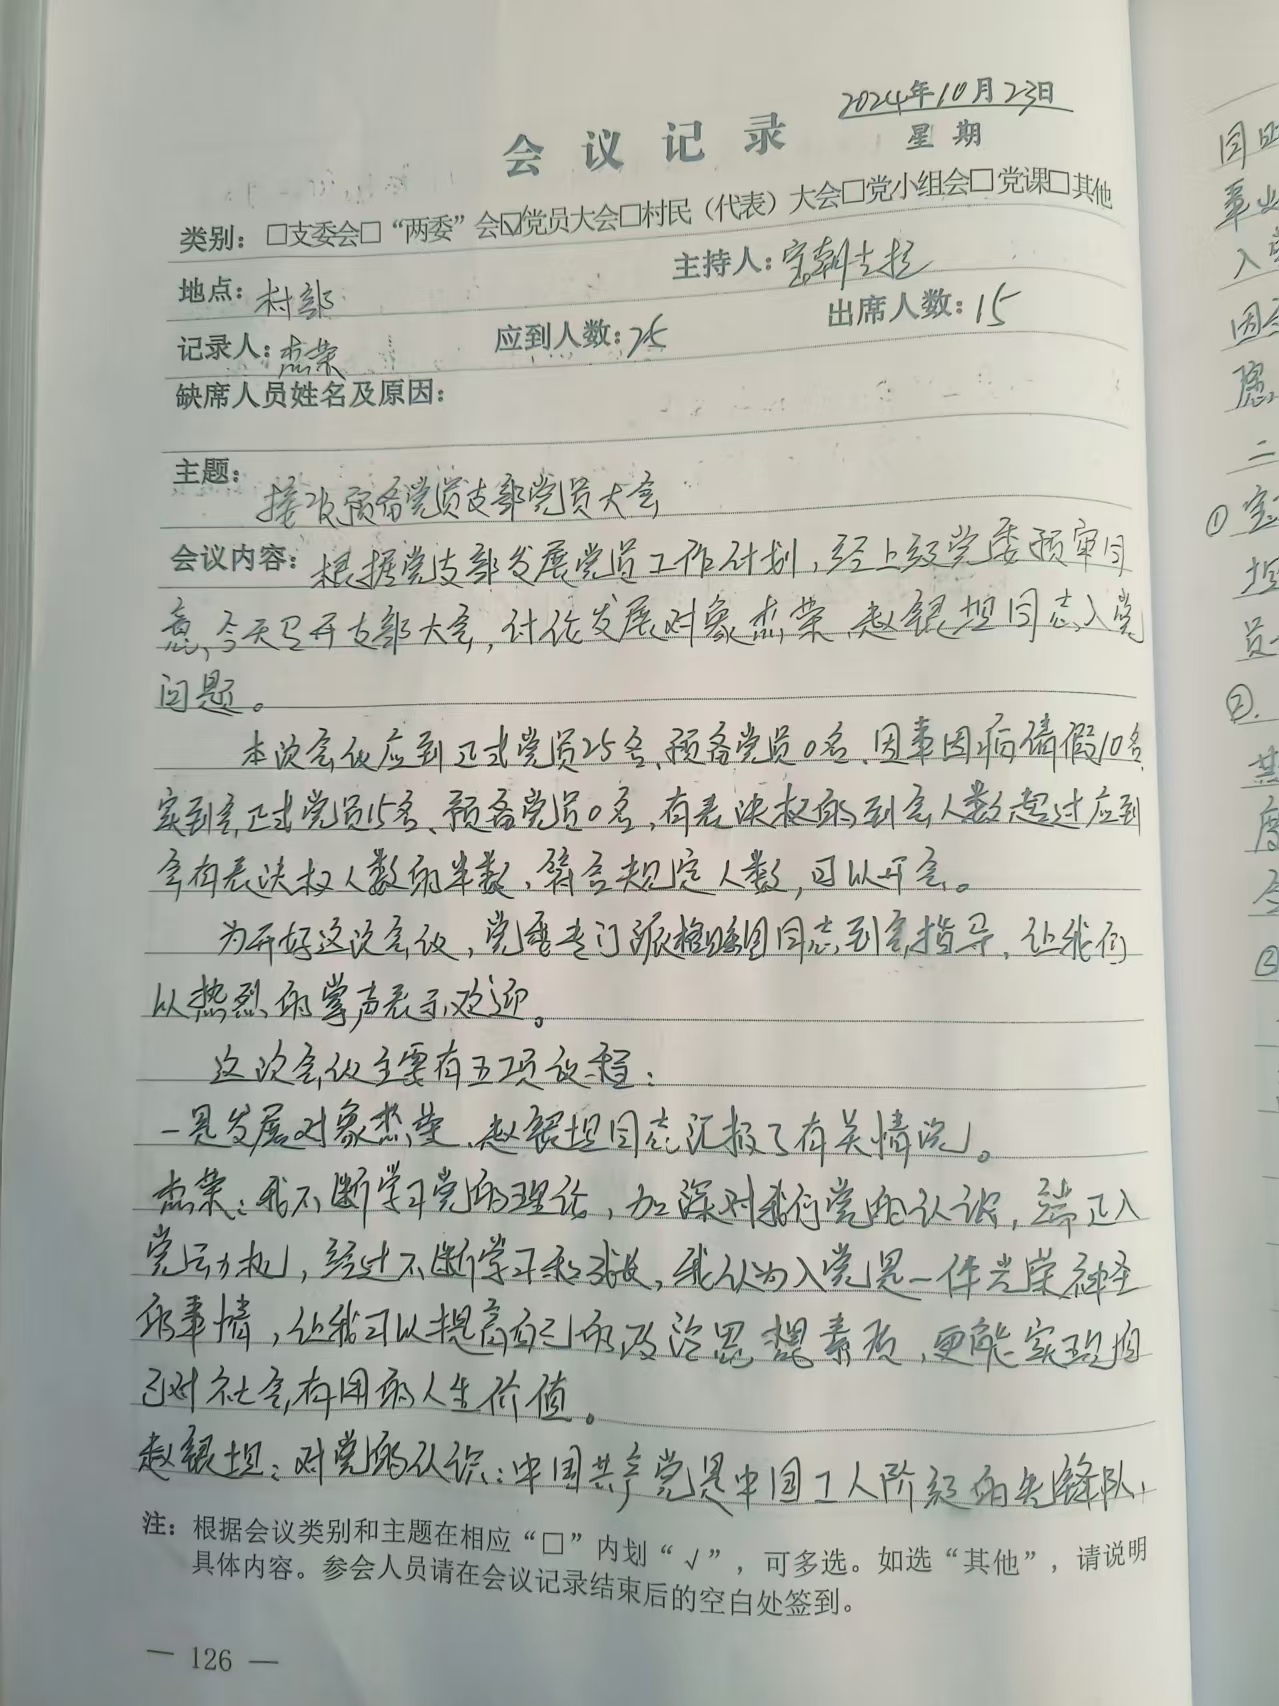 2024年10月23日
会议记录
星期
类别：□支委会□“两委”会☑党员大会□村民（代表）大会□党小组会□党课□其他
地点：村部
主持人：宝朝吉拉
记录人：杰荣
应到人数：25
出席人数：15
缺席人员姓名及原因：
主题：
接收预备党员支部党员大会
会议内容：根据党支部发展党员工作计划，经上级党委预审同
意，今天召开支部大会，讨论发展对象杰荣、赵银坦同志入党
问题。
本次会议应到正式党员25名、预备党员0名、因事因病请假10名
实到会正式党员15名、预备党员0名，有表决权的到会人数超过应到
会有表决权人数的半数，符合规定人数，可以开会。
为开好这次会议，党委专门派同志到会指导，让我们
以热烈的掌声表示欢迎。
这次会议主要有五项议程：
一是发展对象杰荣、赵银坦同志汇报了有关情况。
杰荣：我不断学习党的理论，加深对我们党的认识，端正入
党动机，经过不断学习和成长，我认为入党是一件光荣神圣
的事情，让我可以提高自己的政治思想素质，更能实现自
己对社会有用的人生价值。
赵银坦：对党的认识：中国共产党是中国工人阶级的先锋队，
注：根据会议类别和主题在相应“□”内划“√”，可多选。如选“其他”，请说明
具体内容。参会人员请在会议记录结束后的空白处签到。
— 126 —
事业
入党
二
①
员
②
③